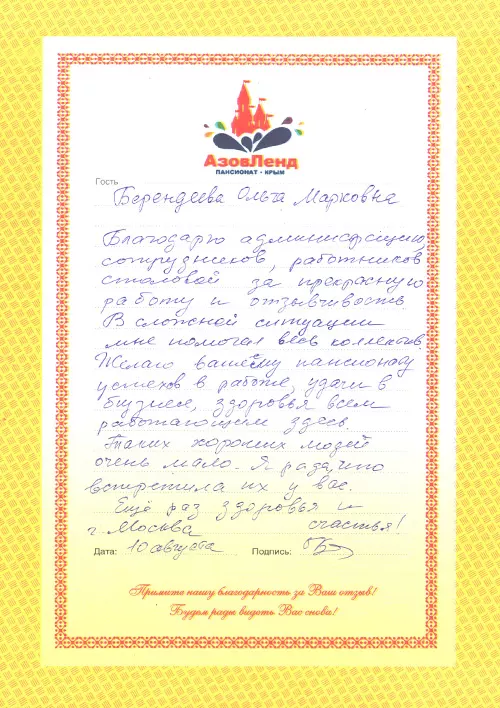 АзовЛенд
ПАНСИОНАТ - КРЫМ
Гость
Берендеева Ольга Марковна
Благодарю администрацию,
сотрудников, работников
столовой за прекрасную
работу и отзывчивость.
В сложной ситуации
мне помогал весь коллектив.
Желаю вашему пансионату
успехов в работе, удачи в
бизнесе, здоровья всем
работающим здесь.
Таких хороших людей
очень мало. Я рада, что
встретила их у вас.
Ещё раз здоровья и
г. Москва счастья!
Дата: 10 августа Подпись:
Примите нашу благодарность за Ваш отзыв!
Будем рады видеть Вас снова!